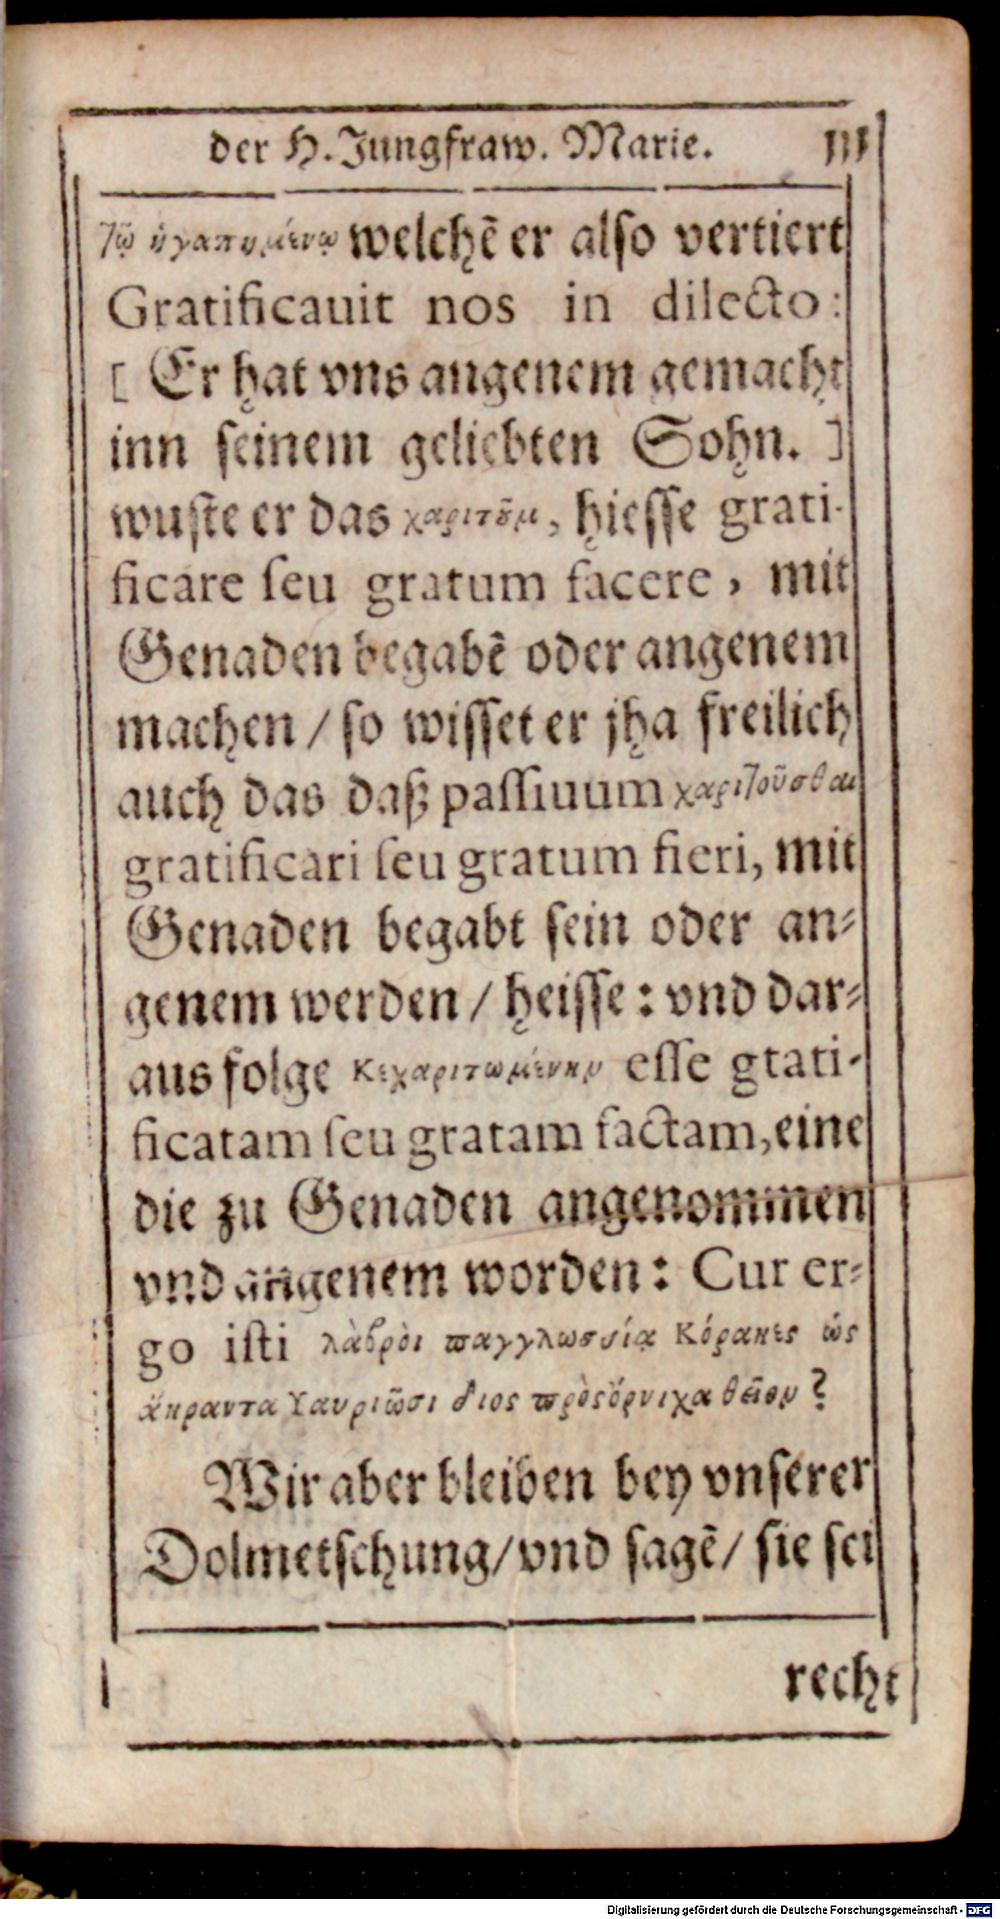 der H. Jungfraw. Marie. 111
τῷ ἠγαπυμένῳ welchẽ er also vertiert
Gratificauit nos in dilecto:
[ Er hat vns angenem gemacht
inn seinem geliebten Sohn. ]
wuste er das χαριτȣ͂μ, hiesse grati-
ficare seu gratum facere, mit
Genaden begabẽ oder angenem
machen / so wisset er jha freilich
auch das daß passiuum χαριτοῦσθαι
gratificari seu gratum fieri, mit
Genaden begabt sein oder an-
genem werden / heisse: vnd dar-
aus folge Κεχαριτωμένην esse gtati-
ficatam seu gratam factam, eine
die zu Genaden angenommen
vnd angenem worden: Cur er-
go isti λὰβρὸι παγγλωσσίᾳ Κόρακες ὡς
ἄκραντα Υαυριῶσι διος πρὸς ὄρνιχα θεῖον?
Wir aber bleiben bey vnserer
Dolmetschung / vnd sagẽ / sie sei
recht
Digitalisierung gefördert durch die Deutsche Forschungsgemeinschaft - DFG